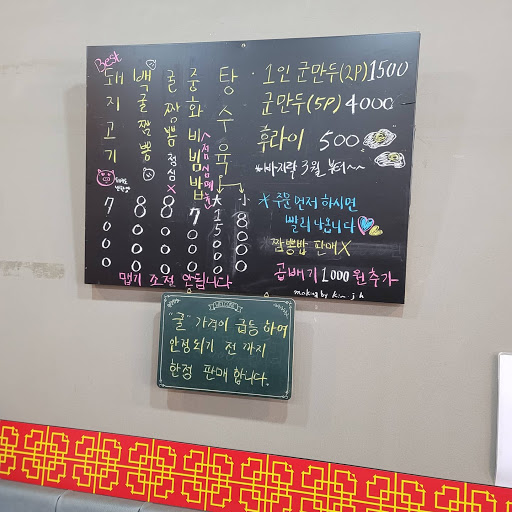 Best
돼지고기
7000
백굴짬뽕
8000
굴짬뽕 점심X
8000
중화비빔밥
7000
탕수육
大 15000
小 8000
맵기 조절 안됩니다
· 1인 군만두(2P) 1500
군만두(5P) 4000
후라이 500
*바지락 3월 부터~~
* 주문 먼저 하시면
빨리 나옵니다
짬뽕밥 판매 X
곱배기 1000원추가
making by kim. j h
WELCOME
"굴" 가격이 급등 하여
안정되기 전 까지
한정 판매 합니다.